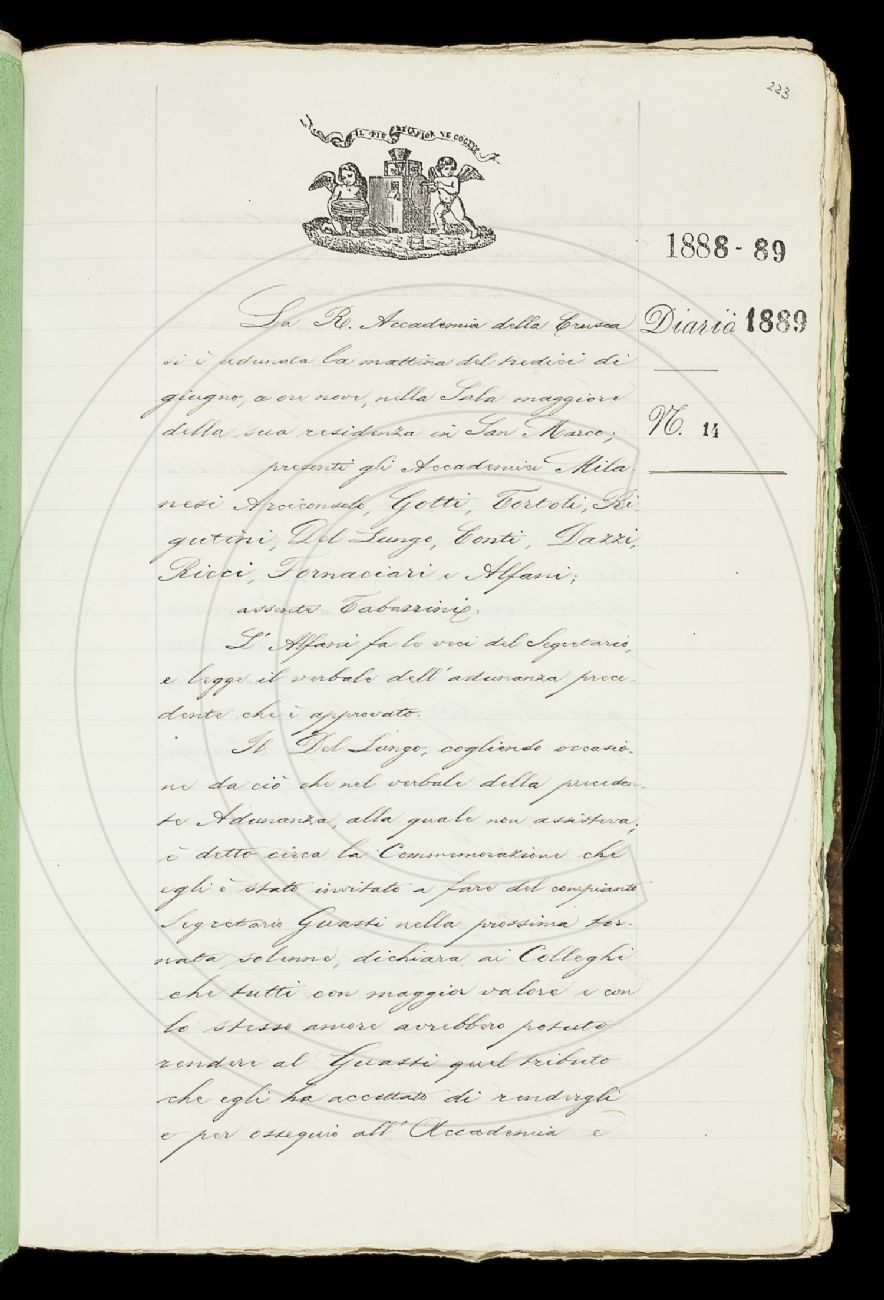 223
IL PIÙ BEL FIOR NE COGLIE
1888-89
Diario 1889
N. 14
La R. Accademia della Crusca
si è adunata la mattina del tredici di
giugno, a ore nove, nella Sala maggiore
della sua residenza in San Marco;
presenti gli Accademici Mila-
nesi Arciconsolo, Gotti, Tortoli, Ri
gutini, Del Lungo, Conti, Dazzi,
Ricci, Fornaciari e Alfani;
assente Tabarrini.
L'Alfani fa le veci del Segretario,
e legge il verbale dell'adunanza prece-
dente che è approvato.
Il Del Lungo, cogliendo occasio-
ne da ciò che nel verbale della preceden-
te Adunanza, alla quale non assisteva,
è detto circa la Commemorazione che
egli è stato invitato a fare del compianto
Segretario Guasti nella prossima tor-
nata solenne, dichiara ai Colleghi
che tutti con maggior valore e con
lo stesso amore avrebbero potuto
rendere al Guasti quel tributo
che egli ha accettato di rendergli
e per ossequio all'Accademia e